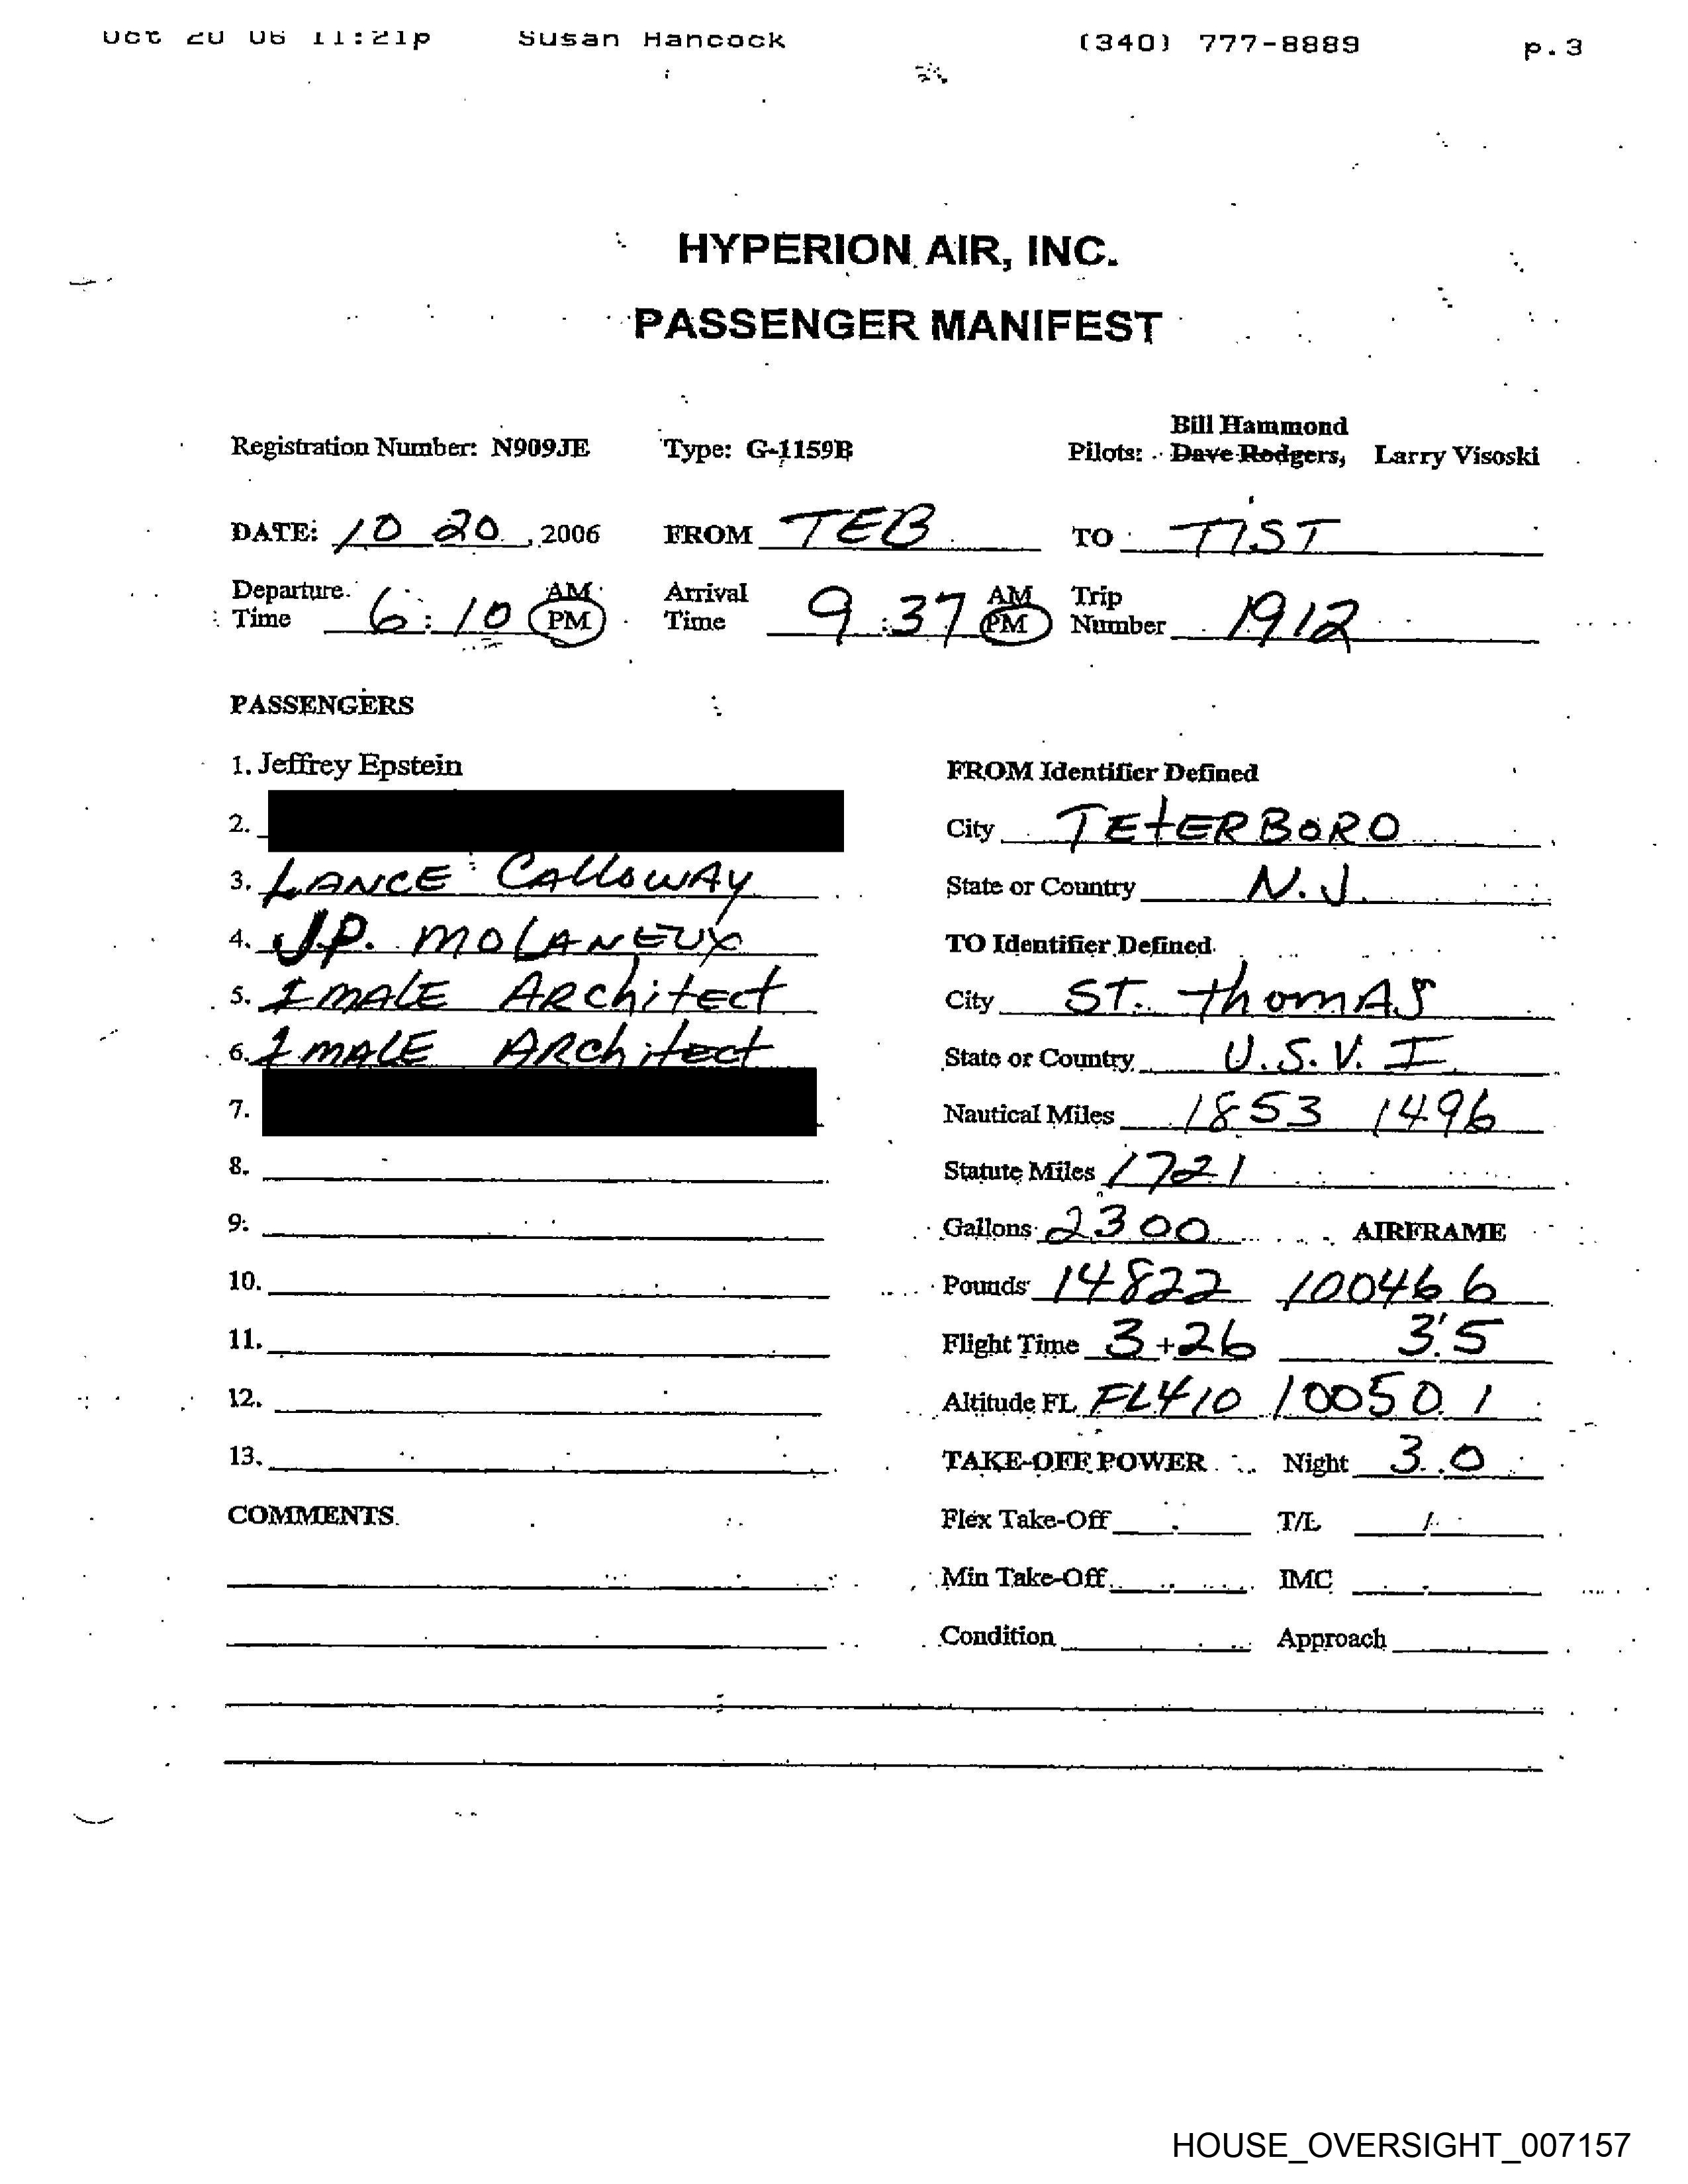 Oct 20 06 11:21p Susan Hancock (340) 777-8889 p.3
HYPERION AIR, INC.
PASSENGER MANIFEST
Bill Hammond
Registration Number: N909JE Type: G-1159B Pilots: Dave Rodgers, Larry Visoski
DATE: 10 20, 2006 FROM TEB TO TIST
Departure Time 6:10 AM PM Arrival Time 9:37 AM PM Trip Number 1912
PASSENGERS
1. Jeffrey Epstein
2.
3. LANCE CALLOWAY
4. J.P. MOLANEUX
5. 1 MALE ARChitect
6. 1 MALE ARChitect
7.
8.
9.
10.
11.
12.
13.
COMMENTS
FROM Identifier Defined
City TEtERBORO
State or Country N.J.
TO Identifier Defined
City ST. thomAS
State or Country U.S.V.I.
Nautical Miles 1853 1496
Statute Miles 1721
Gallons 2300 AIRFRAME
Pounds 14822 10046 6
Flight Time 3+26 3.5
Altitude FL FL410 10050.1
TAKE-OFF POWER Night 3.0
Flex Take-Off T/L /
Min Take-Off IMC
Condition Approach
HOUSE_OVERSIGHT_007157